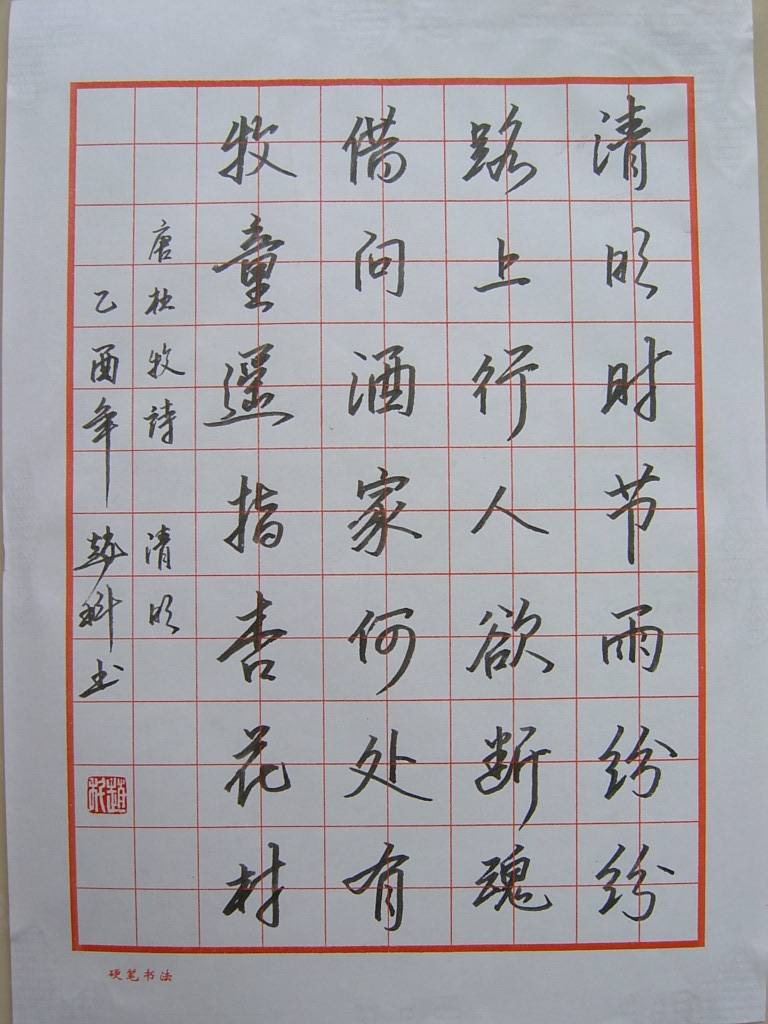 清明时节雨纷纷
路上行人欲断魂
借问酒家何处有
牧童遥指杏花村
唐杜牧詩 清明
乙酉年 赵科书
硬笔书法